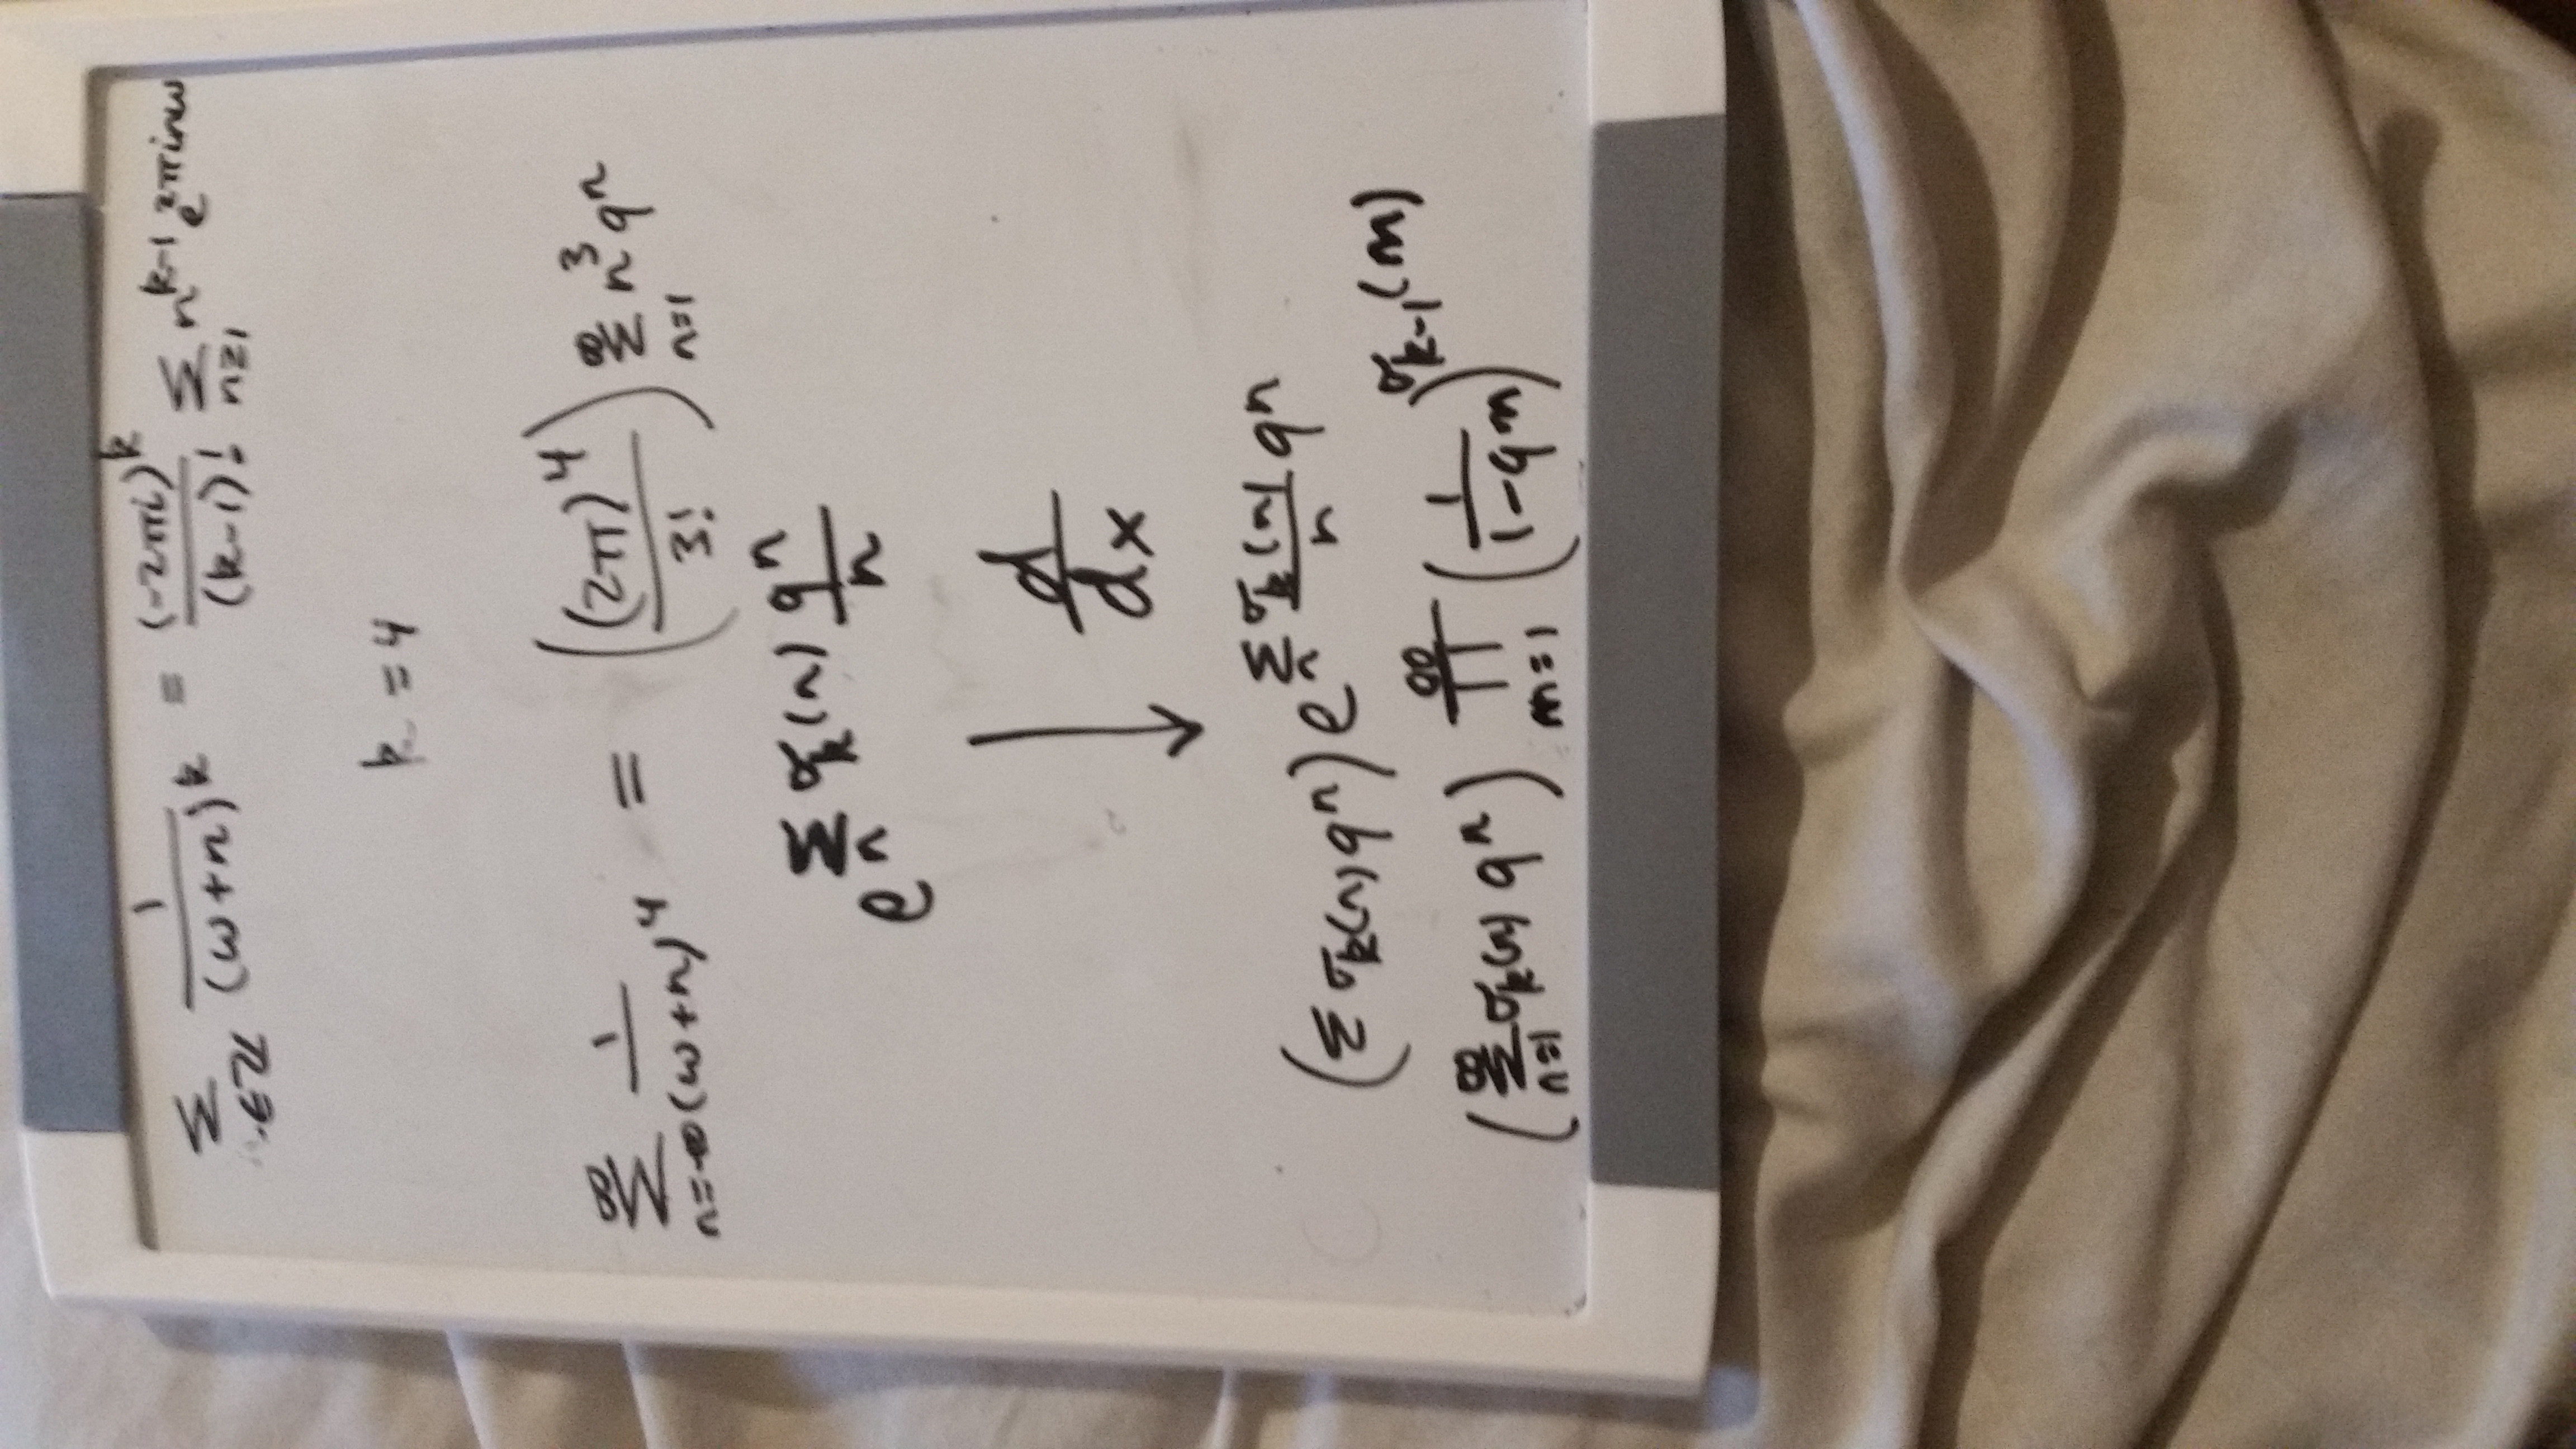 ∑_{n∈ℤ} 1/(ω+n)^k = (-2πi)^k/(k-1)! ∑_{n≥1} n^{k-1} e^{2πinω}
k = 4
∑_{n=-∞}^{∞} 1/(ω+n)^4 = ((2π)^4/3!) ∑_{n=1}^{∞} n^3 q^n
e^{∑_n σ_k(n) q^n/n}
↓ d/dx
(∑ σ_k(n) q^n) e^{∑_n σ_k(n)/n q^n}
(∑_{n=1}^{∞} σ_k(n) q^n) ∏_{m=1}^{∞} (1/(1-q^m))^{σ_{k-1}(m)}